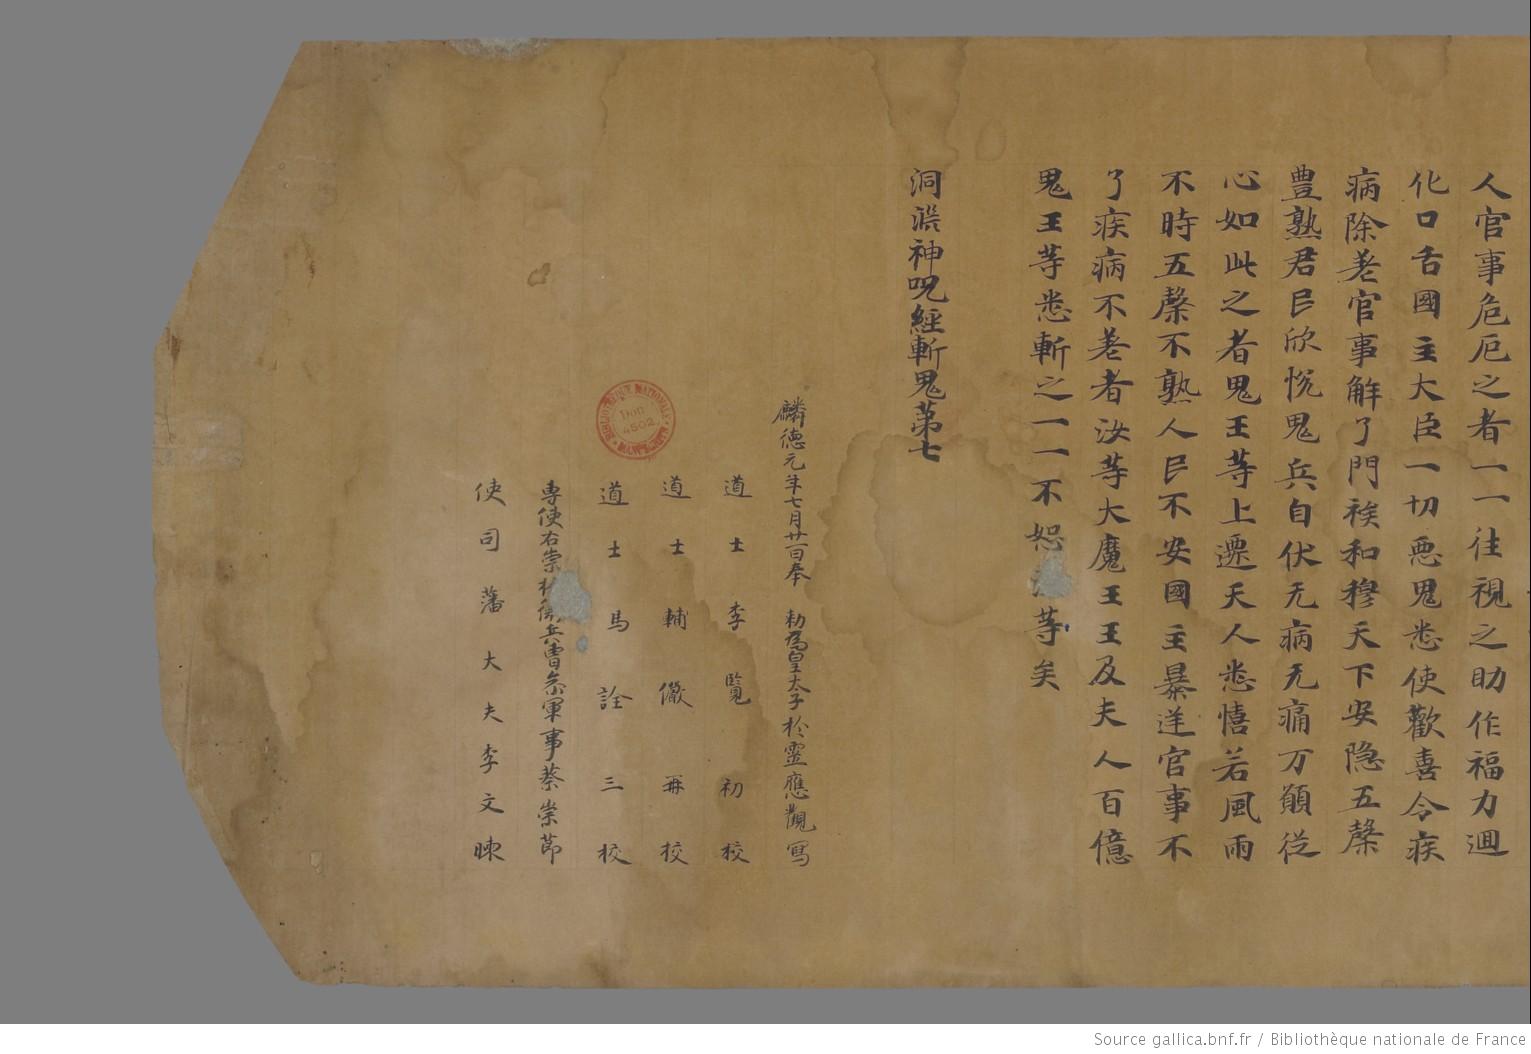 人官事危厄之者一一往視之助作福力迴
化口舌國主大臣一切惡鬼悉使歡喜令疾
病除差官事解了門族和穆天下安隐五糓
豊熟君臣欣悅鬼兵自伏无病无痛万願從
心如此之者鬼王等上遷天人悉憘若風雨
不時五糓不熟人民不安國主暴逆官事不
了疾病不差者汝等大魔王王及夫人百億
鬼王等悉斬之一一不恕 等矣
洞淵神呪經斬鬼第七
麟德元年七月廿一日奉 勅為皇太子於靈應觀寫
道士李覽初校
道士輔儼再校
道士馬詮三校
専使右崇 兵曹叅軍事蔡崇節
使司藩大夫李文暕
BIBLIOTHÈQUE NATIONALE
Don
4502
MANUSCRITS
Source gallica.bnf.fr / Bibliothèque nationale de France